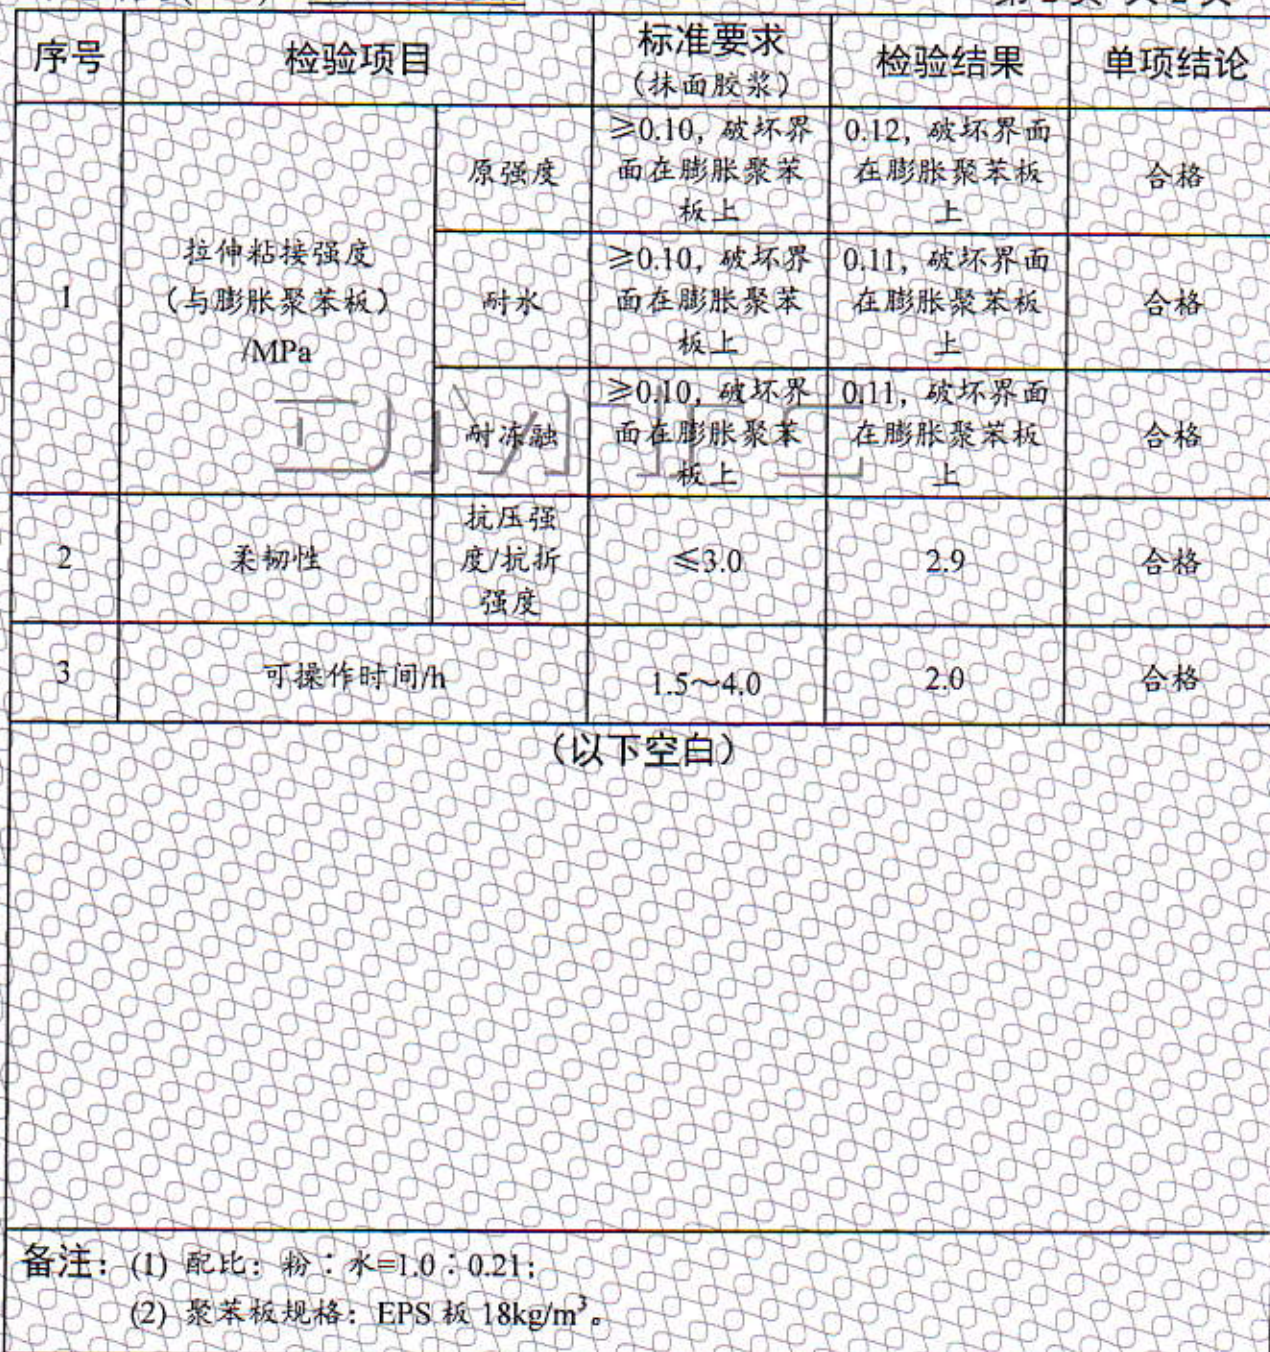 序号 检验项目 标准要求 检验结果 单项结论
（抹面胶浆）
1
拉伸粘接强度
（与膨胀聚苯板）
/MPa
原强度
≥0.10，破坏界
面在膨胀聚苯
板上
0.12，破坏界面
在膨胀聚苯板
上
合格
耐水
≥0.10，破坏界
面在膨胀聚苯
板上
0.11，破坏界面
在膨胀聚苯板
上
合格
耐冻融
≥0.10，破坏界
面在膨胀聚苯
板上
0.11，破坏界面
在膨胀聚苯板
上
合格
2
柔韧性
抗压强
度/抗折
强度
≤3.0
2.9
合格
3 可操作时间/h 1.5～4.0 2.0 合格
（以下空白）
备注：(1) 配比：粉：水=1.0：0.21；
(2) 聚苯板规格：EPS 板 18kg/m³。